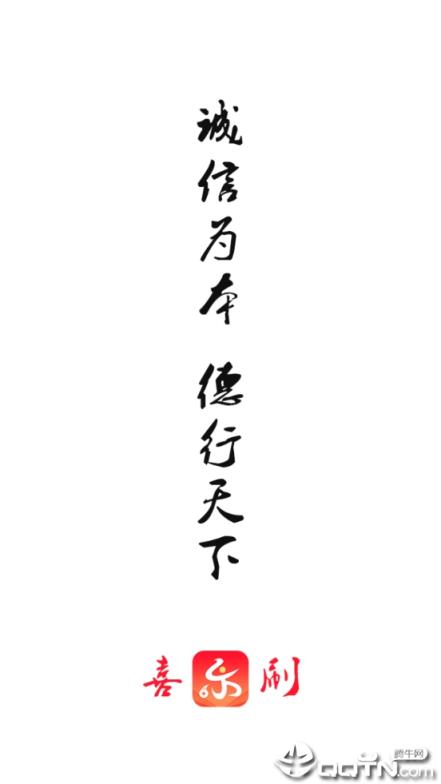 诚信为本 德行天下
喜乐刷
腾牛网
QQTN